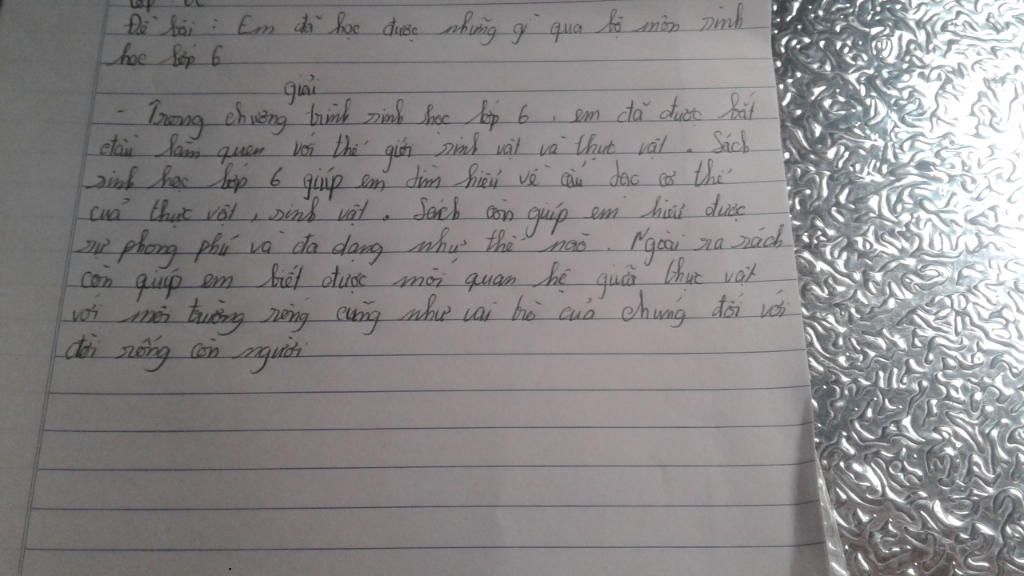 Đề bài : Em đã học được những gì qua bộ môn sinh
học lớp 6
giải
- Trong chương trình sinh học lớp 6, em đã được bắt
đầu làm quen với thế giới sinh vật và thực vật. Sách
sinh học lớp 6 giúp em tìm hiểu về cấu tạo cơ thể
của thực vật, sinh vật. Sách còn giúp em hiểu được
sự phong phú và đa dạng như thế nào. Ngoài ra sách
còn giúp em biết được mối quan hệ giữa thực vật
với môi trường sống cũng như vai trò của chúng đối với
đời sống con người